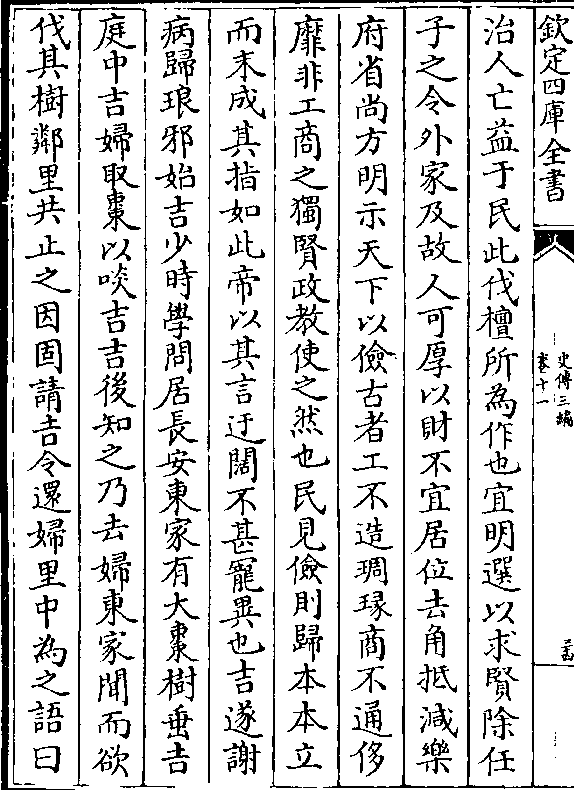 欽定四庫全書
史傳三編
卷十一
治人亡益于民此伐檀所為作也宜明選以求賢除任
子之令外家及故人可厚以財不宜居位去角抵減樂
府省尚方明示天下以儉古者工不造琱瑑商不通侈
靡非工商之獨賢政教使之然也民見儉則歸本本立
而末成其指如此帝以其言迂闊不甚寵異也吉遂謝
病歸琅邪始吉少時學問居長安東家有大棗樹垂吉
庭中吉婦取棗以啖吉吉後知之乃去婦東家聞而欲
伐其樹鄰里共止之因固請吉令還婦里中為之語曰